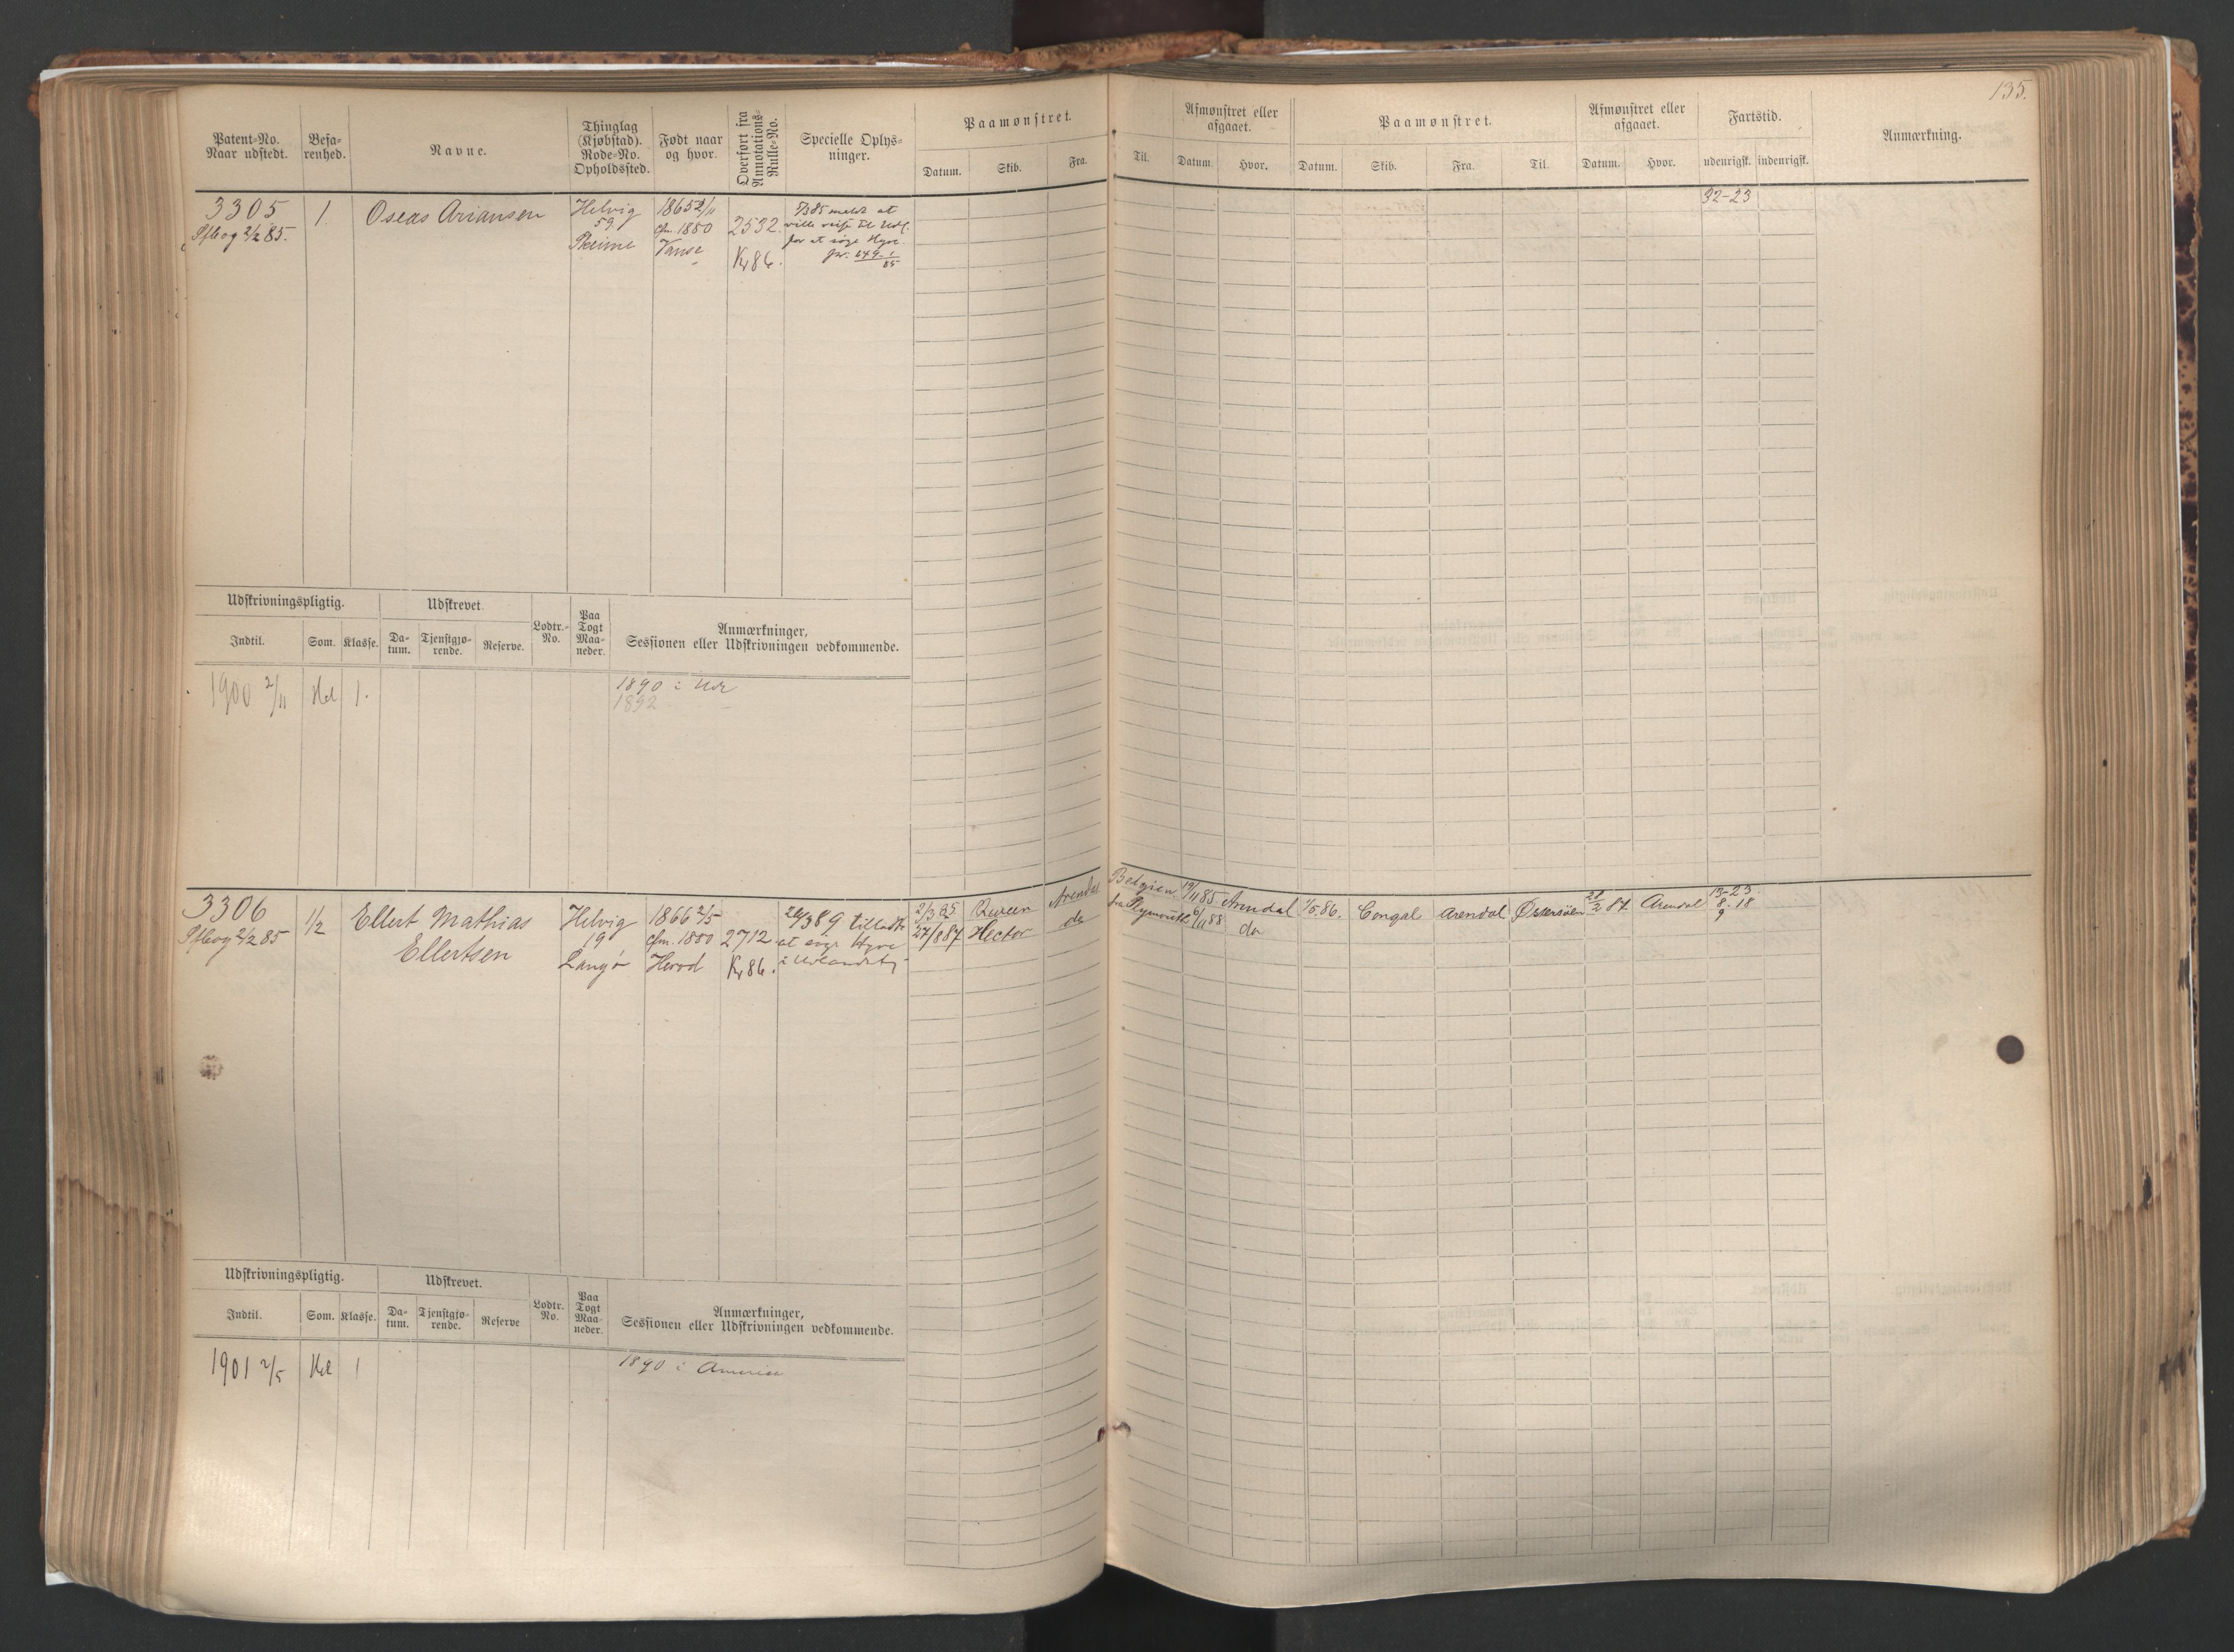 135.
Patent-No. Naar udstedt.
Befa-renhed.
Navne.
Thinglag (Kjøbstad). Rode-No. Opholdssted.
Født naar og hvor.
Overført fra Annotations-Rulle-No.
Specielle Oplys-ninger.
Paamønstret.
Datum. Skib. Fra. Til.
Afmønstret eller afgaaet.
Datum. Hvor.
Paamønstret.
Datum. Skib. Fra. Til.
Afmønstret eller afgaaet.
Datum. Hvor.
Fartstid.
udenrigsk. indenrigsk.
Anmærkning.
3305
2/2 85.
1.
Oseas Ariansen
Helvig
59.
1865 2/11
cfm. 1880
Vanse
2532.
Kr 86.
7/3 85 meldt at
ville reise til Udl.
for at søge Hyre.
32-23
Udskrivningspligtig. Udskrevet.
Lodtr.-No.
Paa Togt Maa-neder.
Anmærkninger,
Sessionen eller Udskrivningen vedkommende.
Indtil. Som. Klasse. Da-tum. Tjenstgjø-rende. Reserve.
1900 2/11
1.
1890 i Udl
1892
3306
2/2 85
1/2
Ellert Mathias
Ellertsen
Helvig
19
Langø
1866 2/5
cfm. 1880
Herod
2712.
Kr 86.
26/3 89 tilladt
at søge Hyre
i Udlandet
2/3 85 Queen Arendal Belgien 19/11 85 Arendal
27/8 87 Hector do fra Plymouth 6/11 88 do
1/5 86. Congal Arendal Østersøen 21/2 87. Arendal
13-23.
8. 18
9
Udskrivningspligtig. Udskrevet.
Lodtr. No.
Paa Togt Maa-neder.
Anmærkninger,
Sessionen eller Udskrivningen vedkommende.
Indtil. Som. Klasse. Da-tum. Tjenstgjø-rende. Reserve
1901 2/5
1
1890 i America